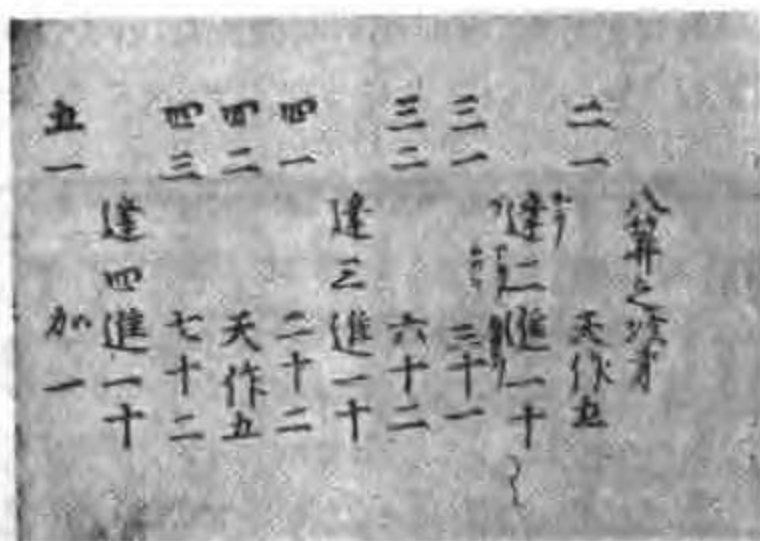 八算之次才
二一 天作五
逢二進一十
三一 三十一
三二 六十二
逢三進一十
四一 二十二
四二 天作五
四三 七十二
逢四進一十
五一 加一